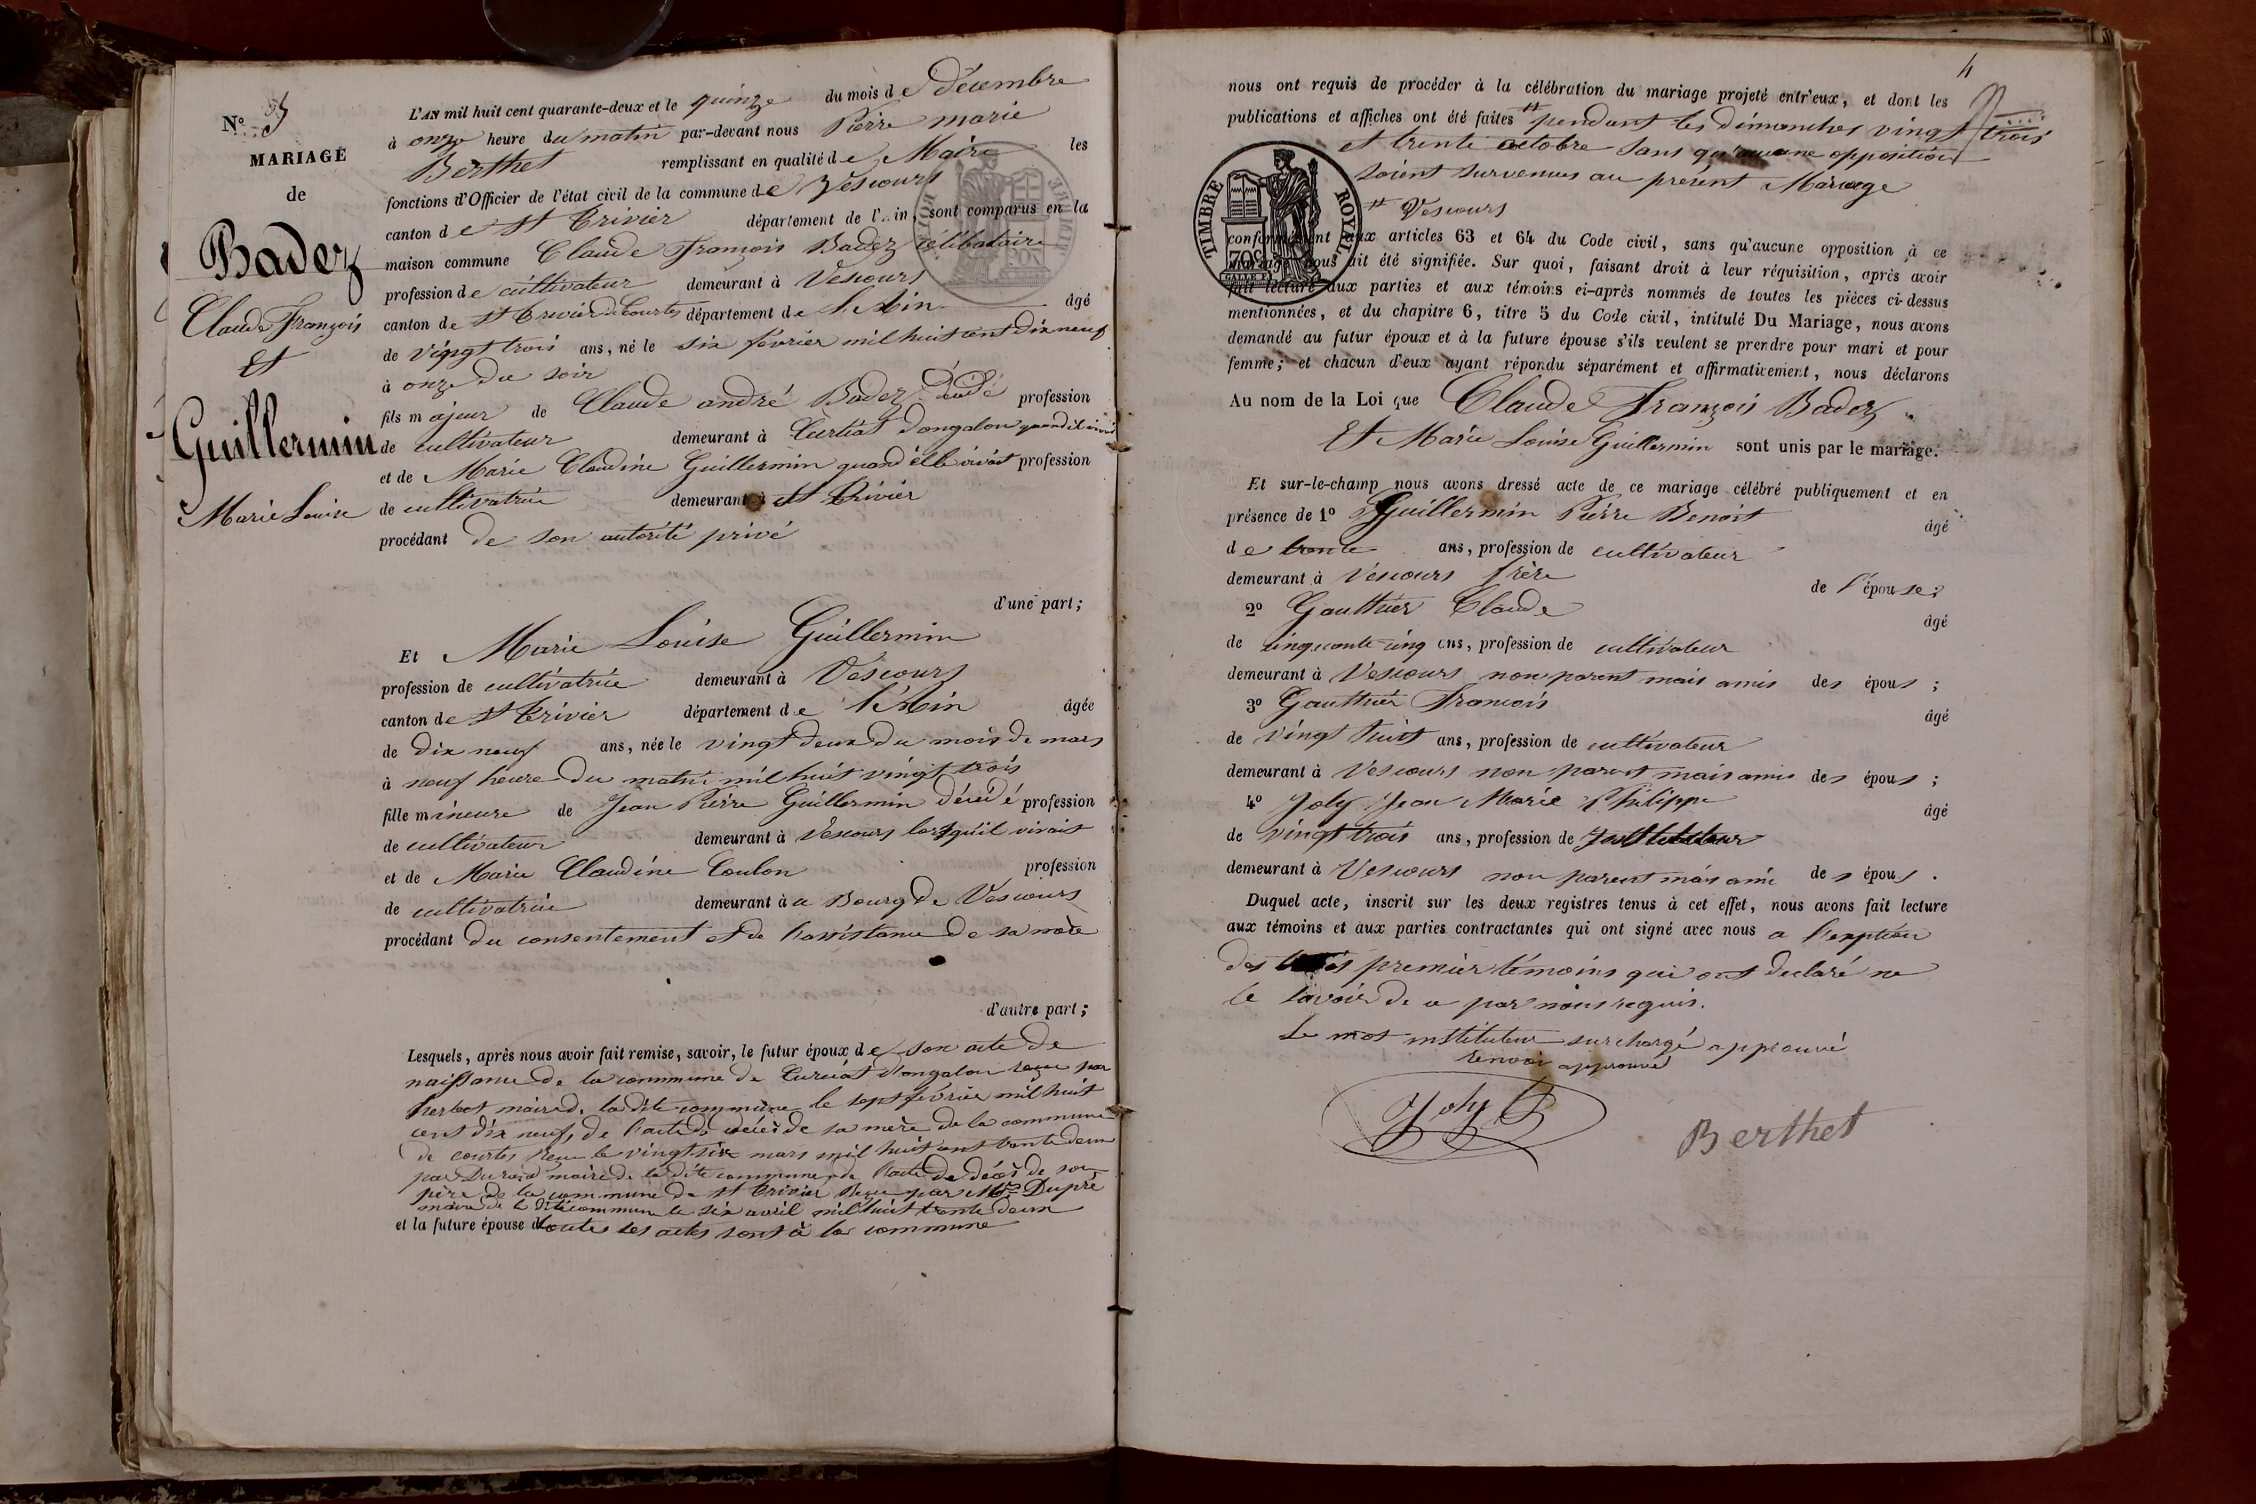 N° 3
MARIAGE
de
Badez
Claude François
Et
Guillermin
Marie Louise
L'AN mil huit cent quarante-deux et le quinze du mois de Décembre
à onze heure du matin par-devant nous Pierre marie
Berthet remplissant en qualité de Maire les
fonctions d'Officier de l'état civil de la commune de Vescours
canton de St Trivier département de l'Ain, sont comparus en la
maison commune Claude François Badez célibataire
profession de cultivateur demeurant à Vescours
canton de St Trivier de Courtes département de l'Ain âgé
de vingt trois ans, né le six fevrier mil huit cent dix neuf
à onze du soir
fils majeur de Claude andré Badez décédé profession
de cultivateur demeurant à Curciat Dongalon quand il vivait
et de Marie Claudine Guillermin quand elle vivait profession
de cultivatrice demeurant à St Trivier
procédant de son autorité privé
d'une part ;
Et Marie Louise Guillermin
profession de cultivatrice demeurant à Vescours
canton de St Trivier département de l'Ain âgée
de dix neuf ans, née le vingt deux du mois de mars
à neuf heure du matin mil huit vingt trois
fille mineure de Jean Pierre Guillermin décédé profession
de cultivateur demeurant à Vescours lorsqu'il vivait
et de Marie Claudine Coulon profession
de cultivatrice demeurant à a Bourg de Vescours
procédant du consentement et de l'assistance de sa mère
d'autre part ;
Lesquels, après nous avoir fait remise, savoir, le futur époux de son acte de
naissance de la commune de Curciat Dongalon reçu par
herbet maire de la dite commune le sept février mil huit
cent dix neuf, de l'acte de décès de sa mère de la commune
de courtes reçu le vingt six mars mil huit cent trente deux
par maire de la dite commune, de l'acte de décès de son
père de la commune de St Trivier Reçu par Mr Dupré
maire de la dite commune le six avril mil huit trente deux
et la future épouse d toutes les actes sont à la commune
4
nous ont requis de procéder à la célébration du mariage projeté entr'eux, et dont les
publications et affiches ont été faites # pendant les dimanches vingt trois
et trente octobre sans qu'aucune opposition
soient survenues au présent Mariage
# Vescours
TIMBRE ROYAL
70c
conformément aux articles 63 et 64 du Code civil, sans qu'aucune opposition à ce
mariage nous ait été signifiée. Sur quoi, faisant droit à leur réquisition, après avoir
fait lecture aux parties et aux témoins ci-après nommés de toutes les pièces ci-dessus
mentionnées, et du chapitre 6, titre 5 du Code civil, intitulé Du Mariage, nous avons
demandé au futur époux et à la future épouse s'ils veulent se prendre pour mari et pour
femme ; et chacun d'eux ayant répondu séparément et affirmativement, nous déclarons
Au nom de la Loi que Claude François Badez
Et Marie Louise Guillermin sont unis par le mariage.
Et sur-le-champ nous avons dressé acte de ce mariage célébré publiquement et en
présence de 1° Guillermin Pierre Benoit âgé
de trente ans, profession de cultivateur
demeurant à Vescours frère de l'épouse ;
2° Gauthier Claude âgé
de cinquante cinq ans, profession de cultivateur
demeurant à Vescours non parent mais amis des épous ;
3° Gauthier Francois âgé
de vingt huit ans, profession de cultivateur
demeurant à Vescours non parent mais amis des épous ;
4° Joly Jean Marie Philippe âgé
de vingt trois ans, profession de Instituteur
demeurant à Vescours non parent mais ami des épous .
Duquel acte, inscrit sur les deux registres tenus à cet effet, nous avons fait lecture
aux témoins et aux parties contractantes qui ont signé avec nous a l'exeption
des premier témoins qui ont declaré ne
le savoir de ce par nous requis.
Le mot instituteur surchargé approuvé
renvoi approuvé
Joly
Berthet